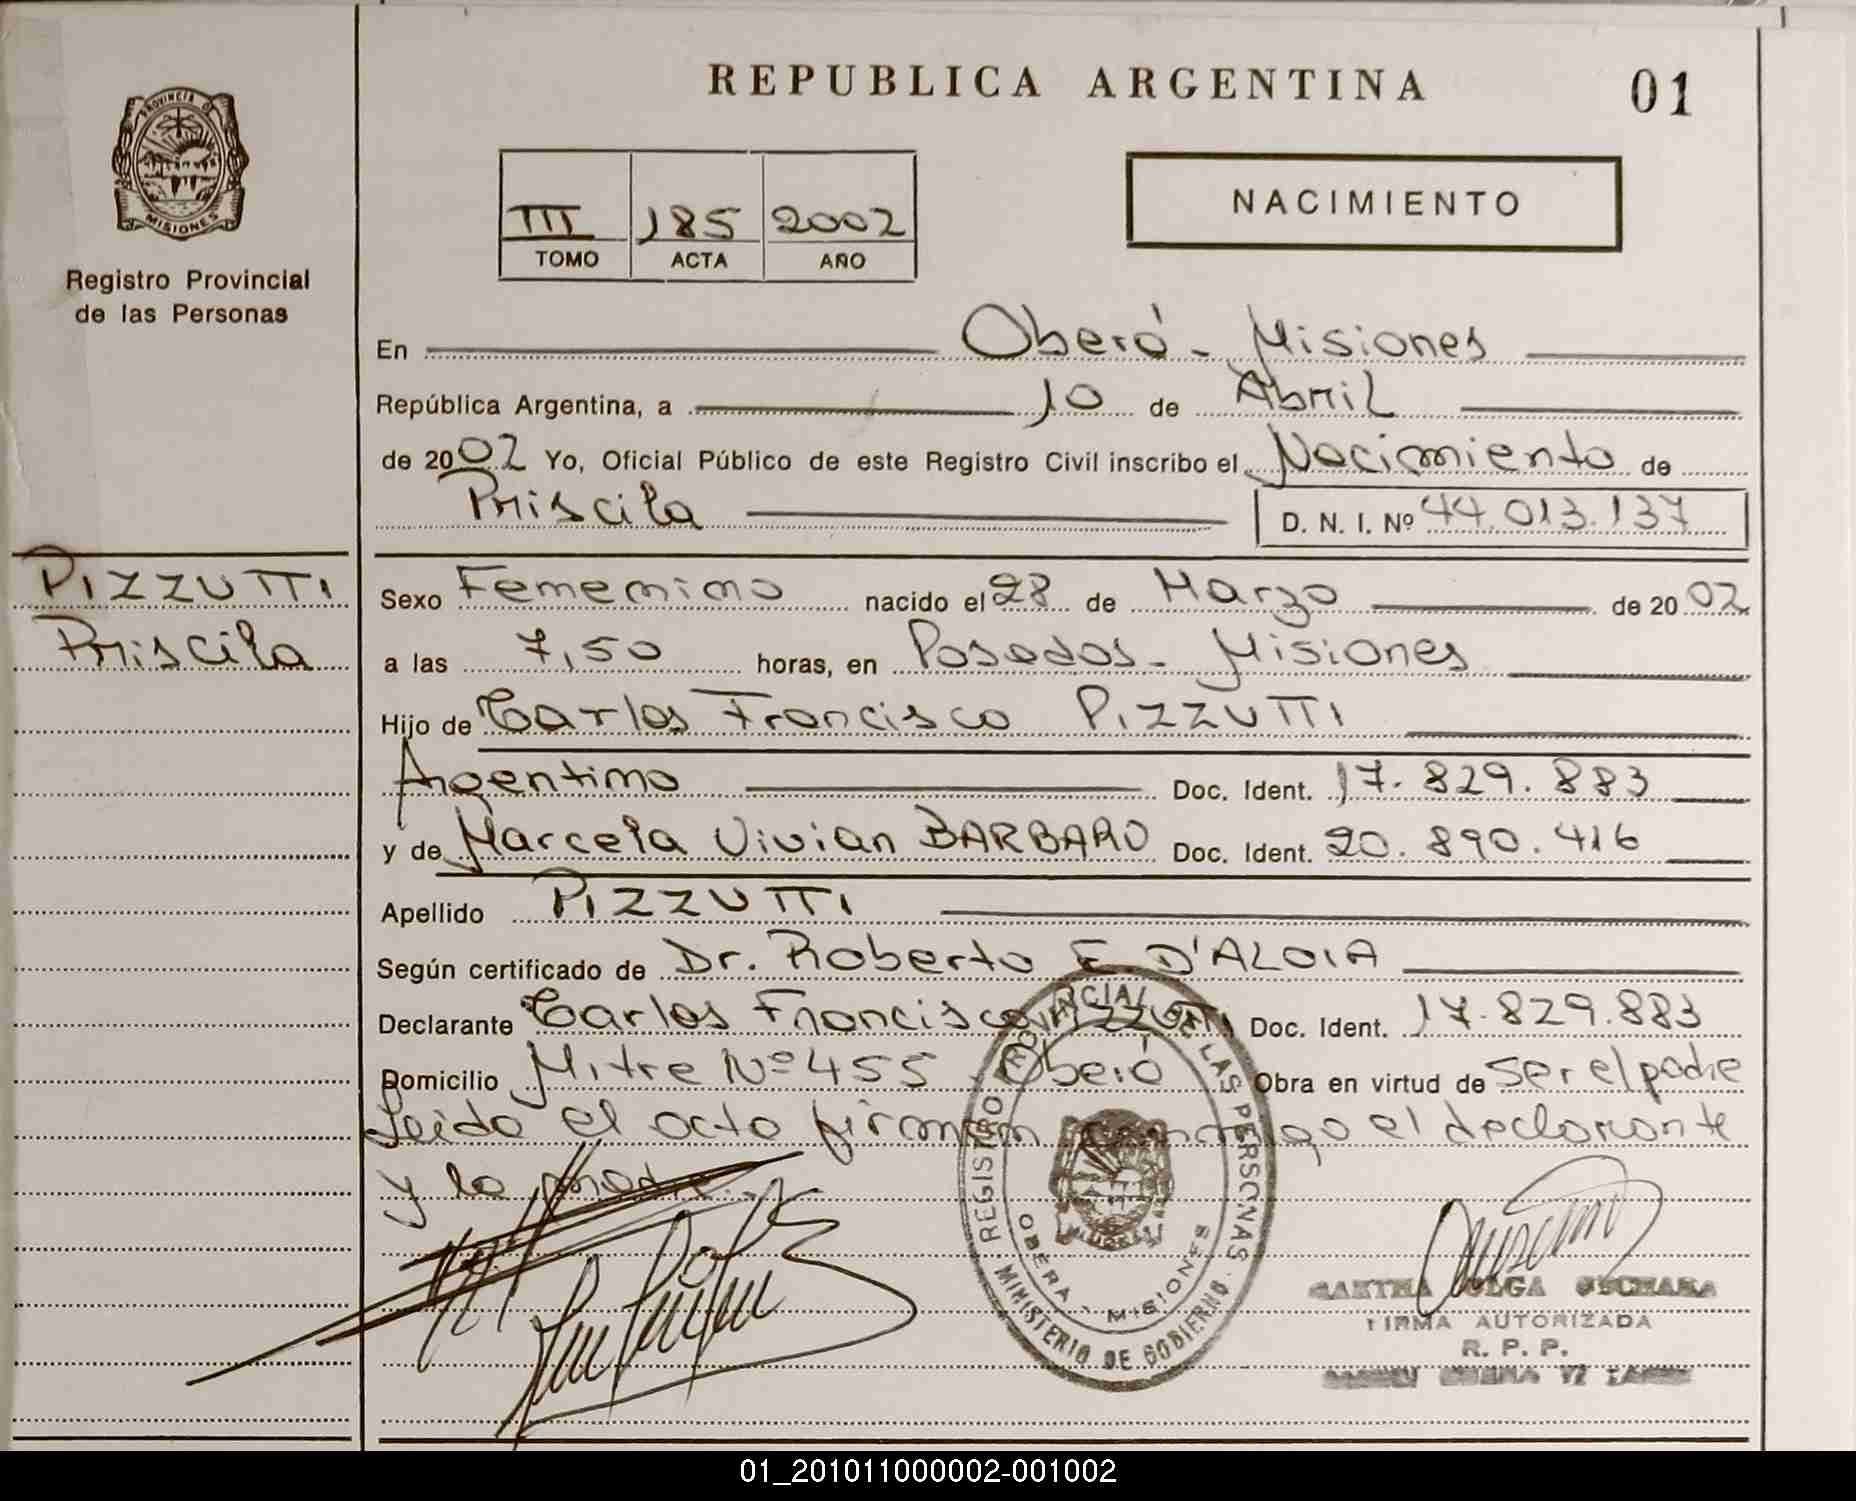 REPUBLICA ARGENTINA
01
PROVINCIA D
MISIONES
Registro Provincial
de las Personas
NACIMIENTO
III 185 2002
TOMO ACTA AÑO
En Oberá - Misiones
República Argentina, a 10 de Abril
de 2002 Yo, Oficial Público de este Registro Civil inscribo el Nacimiento de
Priscila D. N. I. Nº 44.013.137
PIZZUTTI
Priscila
Sexo Femenino nacido el 28 de Marzo de 2002
a las 7,50 horas, en Posadas - Misiones
Hijo de Carlos Francisco PIZZUTTI
Argentino Doc. Ident. 17.829.883
y de Marcela Vivian BARBARO Doc. Ident. 20.890.416
Apellido PIZZUTTI
Según certificado de Dr. Roberto E. D'ALOIA
Declarante Carlos Francisco PIZZUTTI Doc. Ident. 17.829.883
Domicilio Mitre Nº 455 - Oberá Obra en virtud de ser el padre
Leido el acta firman conmigo el declarante
y la madre.
REGISTRO PROVINCIAL DE LAS PERSONAS
MINISTERIO DE GOBIERNO
OBERA - MISIONES
FIRMA AUTORIZADA
R. P. P.
01_201011000002-001002